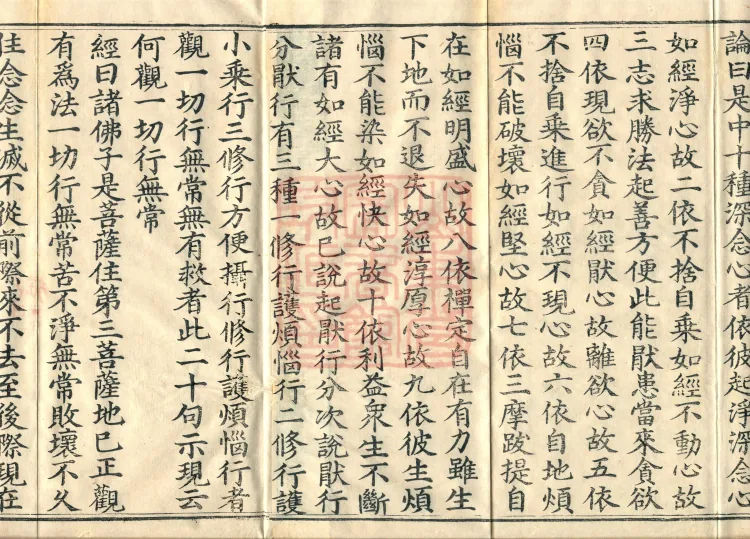 論曰是中十種深念心者依彼起淨深念心
如經淨心故二依不捨自乘如經不動心故
三志求勝法起善方便此能猒患當來貪欲
四依現欲不貪如經猒心故離欲心故五依
不捨自乘進行如經不現心故六依自地煩
惱不能破壞如經堅心故七依三摩跋提自
在如經明盛心故八依禪定自在有力雖生
下地而不退失如經淳厚心故九依彼生煩
惱不能染如經快心故十依利益衆生不斷
諸有如經大心故已說起猒行分次說猒行
分猒行有三種一修行護煩惱行二修行護
小乘行三修行方便攝行修行護煩惱行者
觀一切行無常無有救者此二十句示現云
何觀一切行無常
經曰諸佛子是菩薩住第三菩薩地已正觀
有爲法一切行無常苦不淨無常敗壞不久
住念念生滅不從前際來不去至後際現在